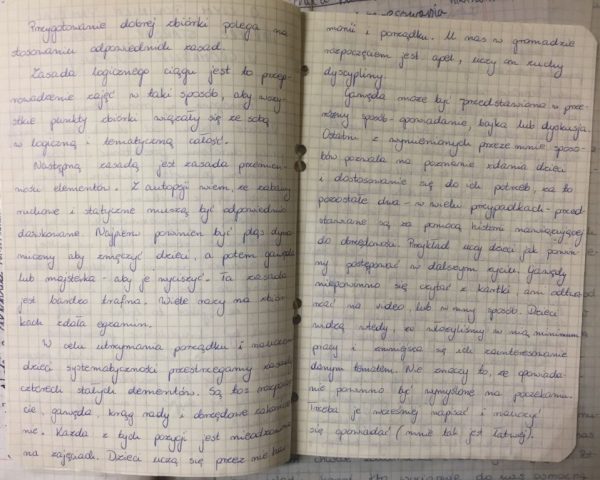 Przygotowanie dobrej zbiórki polega na
stosowaniu odpowiednich zasad.
Zasada logicznego ciągu jest to przep-
rowadzenie zajęć w taki sposób, aby wszy-
stkie punkty zbiórki wiązały się ze sobą
w logiczną i tematyczną całość.
Następną zasadą jest zasada przemien-
ności elementów. Z autopsji wiem, że zabawy
ruchowe i statyczne muszą być odpowiednio
dawkowane. Najpierw powinien być pląs dyna
miczny aby zmęczyć dzieci, a potem gawęda
lub majsterka - aby je wyciszyć. Ta zasada
jest bardzo trafna. Wiele razy na zbiór
kach zdała egzamin.
W celu utrzymania porządku i nauczenia
dzieci systematyczności przestrzegamy zasady
czterech stałych elementów. Są to: rozpoczę
cie, gawęda, krąg rady i obrzędowe zakończe
nie. Każda z tych pozycji jest nieodzowna
na zajęciach. Dzieci uczą się przez nie
monii i porządku. U nas w gromadzie
rozpoczęciem jest apel, uczy on zuchy
dyscypliny.
Gawęda może być przedstawiona w prze
różny sposób - opowiadanie, bajka lub dyskusja.
Ostatni z wymienionych przeze mnie sposo-
bów pozwala na poznanie zdania dzieci
i dostosowanie się do ich potrzeb, za to
pozostałe dwa - w wielu przypadkach - przed
stawiane są za pomocą historii nawiązującej
do obrzędowości. Przykład uczy dzieci jak powin
ny postępować w dalszym życiu. Gawędy
nie powinno się czytać z kartki, ani odtwa
rzać na video, lub w inny sposób. Dzieci
widzą wtedy, że włożyliśmy w nią minimum
pracy i zmniejsza się ich zainteresowanie
danym tematem. Nie znaczy to, że opowiada
nie powinno być wymyślone na poczekaniu.
Trzeba je wcześniej napisać i nauczyć
się opowiadać (mnie tak jest łatwiej).